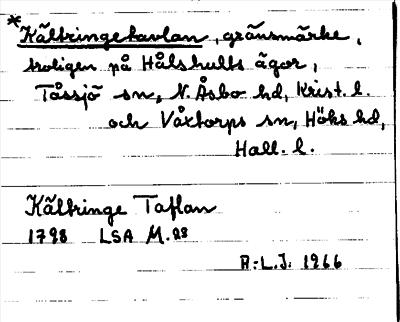 *Kältringekavlan, gränsmärke,
troligen på Hålshults ägor,
Tåssjö sn, N. Åsbo hd, Krist. l.
och Våxtorps sn, Höks hd,
Hall. l.
Kältringe Taflan
1798 LSA M. 28
A:L.J. 1966